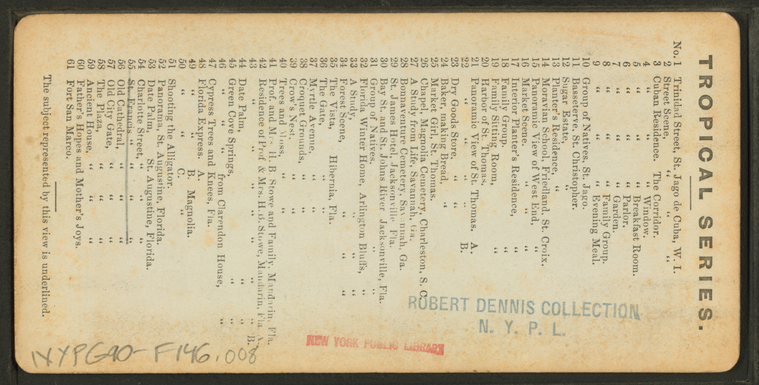 TROPICAL SERIES.
No. 1 Trinidad Street, St. Jago de Cuba, W. I.
2 Street Scene, " " "
3 Cuban Residence. The Corridor.
4 " " Window.
5 " " Breakfast Room.
6 " " Parlor.
7 " " Garden.
8 " " Family Group.
9 " " Evening Meal.
10 Group of Natives, St. Jago.
11 Basseterre, St. Christopher.
12 Sugar Estate, "
13 Planter's Residence, "
14 Moravian School, Friedland, St. Croix.
15 Panoramic View of West End, "
16 Market Scene. "
17 Interior Planter's Residence, "
18 Family Group. "
19 Family Sitting Room, "
20 Harbor of St. Thomas,
21 Panoramic View of St. Thomas. A.
22 " " " B.
23 Dry Goods Store, "
24 Baker, making Bread, "
25 Market Girl, St. Thomas.
26 Chapel, Magnolia Cemetery, Charleston, S. C.
27 A Study from Life, Savannah, Ga.
28 Bonaventure Cemetery, Savannah, Ga.
29 St. James Hotel, Jacksonville, Fla.
30 Bay St. and St. Johns River, Jacksonville, Fla.
31 Group of Natives. " "
32 Florida Winter Home, Arlington Bluffs, "
33 A Study, " "
34 Forest Scene, " "
35 The Vista, Hibernia, Fla.
36 The Gate, " "
37 Myrtle Avenue, " "
38 Croquet Grounds, " "
39 Crow's Nest, " "
40 Trees and Moss, " "
41 Prof. and Mrs. H. B. Stowe and Family, Mandarin, Fla.
42 Residence of Prof. & Mrs. H. B. Stowe, Mandarin, Fla. A.
43 " " " " B.
44 Date Palm, "
45 Green Cove Springs, "
46 " " from Clarendon House, "
47 Cypress Trees and Knees, Fla.
48 Florida Express. A.
49 " " B. Magnolia.
50 " " C. "
51 Shooting the Alligator.
52 Panorama, St. Augustine, Florida.
53 Date Palm, St. Augustine, Florida.
54 Charlotte Street, " "
55 St. Francis " " "
56 Old Cathedral, " "
57 Old City Gate, " "
58 The Plaza, " "
59 Ancient House, " "
60 Father's Hopes and Mother's Joys.
61 Fort San Marco.
The subject represented by this view is underlined.
ROBERT DENNIS COLLECTION
N. Y. P. L.
NEW YORK PUBLIC LIBRARY
NYPG90-F146.008